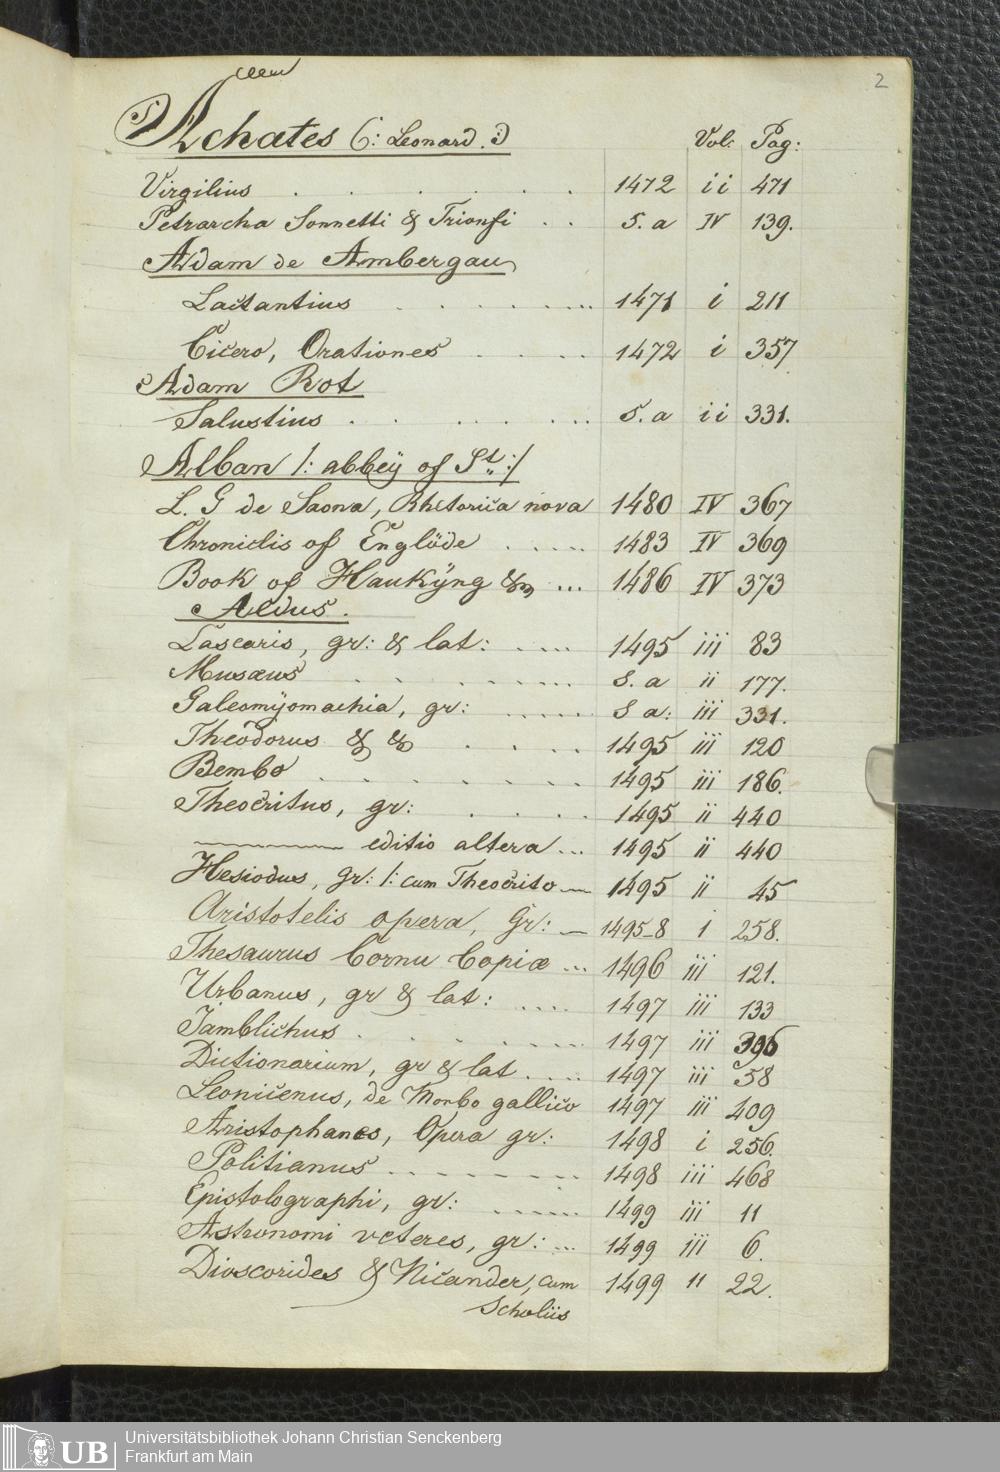 2
Achates (: Leonard :) Vol: Pag:
Virgilius . . . . . . . 1472 ii 471
Petrarcha Sonnetti & Trionfi . . S. a IV 139.
Adam de Ambergau
Lactantius . . . . . . . . 1471 i 211
Cicero, Orationes . . . . . 1472 i 357
Adam Rot
Salustius . . . . . . . . S. a ii 331.
Alban /: abbeÿ of St. :/
L. G de Saona, Rhetorica nova 1480 IV 367
Chroniclis of Englöde . . . . . 1483 IV 369
Book of Haukÿng &c ... 1486 IV 373
Aldus.
Lascaris, gr: & lat: . . . . . 1495 iii 83
Musæus . . . . . . . . . 8. a ii 177.
Galeomÿomachia, gr: . . . . . 8 a: iii 331.
Theodorus & & . . . . . 1495 iii 120
Bembo . . . . . . . . 1495 iii 186.
Theocritus, gr: . . . . 1495 ii 440
——— editio altera ... 1495 ii 440
Hesiodus, gr: /: cum Theocrito — 1495 ii 45
Aristotelis opera, Gr: — 1495-8 i 258.
Thesaurus Cornu Copiæ ... 1496 iii 121.
Urbanus, gr & lat: . . . . 1497 iii 133
Jamblichus . . . . . . . . 1497 iii 396
Dictionarium, gr & lat . . . . 1497 iii 58
Leonicenus, de Morbo gallico 1497 iii 409
Aristophanes, Opera gr: 1498 i 256.
Politianus - - - - - - - - 1498 iii 468
Epistolographi, gr: . . . . . . 1499 iii 11
Astronomi veteres, gr: ... 1499 iii 6.
Dioscorides & Nicander, cum 1499 11 22.
Scholiis
UB
Universitätsbibliothek Johann Christian Senckenberg
Frankfurt am Main